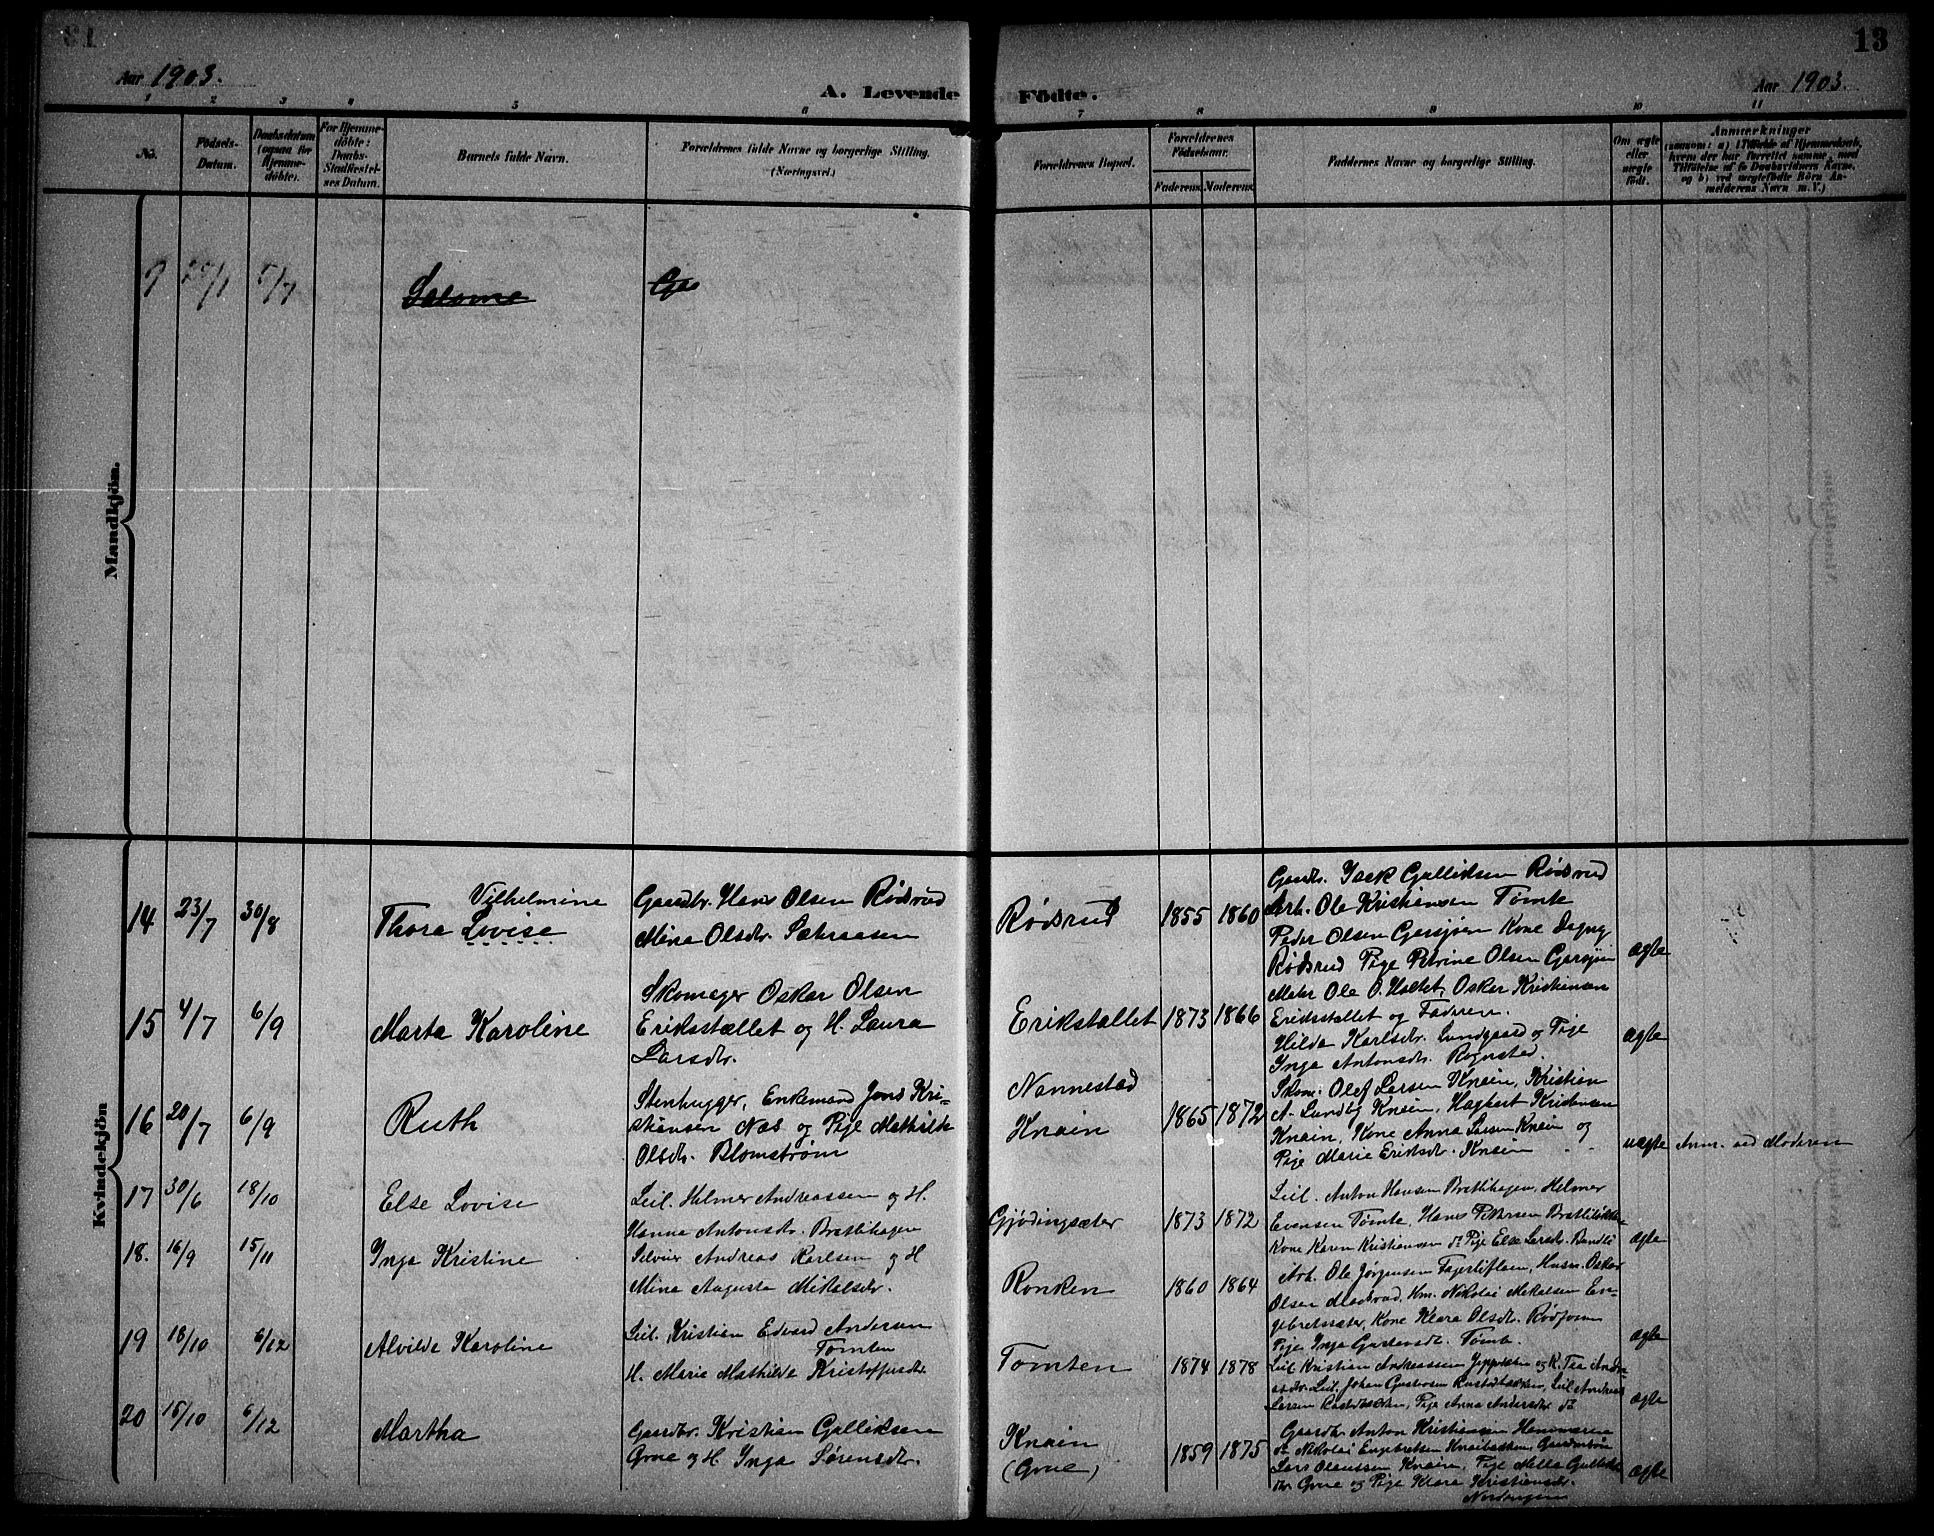 13
Aar 1903.
A. Levende Födte.
Aar 1903.
1 2 3 4 5 6 7 8 9 10 11
No.
Födsels-Datum.
Daabsdatum (ogsaa for Hjemmedöbte).
For Hjemmedöbte: Daabs-Stadfæstelses Datum.
Barnets fulde Navn.
Forældrenes fulde Navne og borgerlige Stilling. (Næringsvei.)
Forældrenes Bopæl.
Forældrenes Födselsaar.
Faderens. Moderens.
Faddernes Navne og borgerlige Stilling.
Om ægte eller uægte födt.
Anmærkninger
Mandkjön.
9
5/7
Salome
Kvindekjön
14 23/7 30/8
Vilhelmine
Thora Lovise
Gaardbr. Hans Olsen Rödsrud
Mina Olsdtr.
Rödsrud
1855 1860
Gaardbr. Isak Gulliksen Rödsrud
Arb. Ole Kristiansen Tömte
Peder Olsen Gersjöen Kone Dagny
Rödsrud Pige Petrine Olsen Gersjöen
ægte
15 4/7 6/9
Marta Karoline
Skomager Oskar Olsen
Eriksstællet og H. Laura
Larsdtr.
Erikstællet
1873 1866
Maler Ole O. Holtet, Oskar Kristiansen
Eriksstallet og Faderen.
Hilda Karlsdtr. Lundgaard og Pige
Inga Antonsdtr. Rognstad.
ægte
16 20/7 6/9
Ruth
Stenhugger, Enkemand Jons Kri-
stiansen Næs og Pige Mathilde
Olsdtr. Blomström
Nannestad
Knain
1865 1872
Skom. Olof Larsen Knain, Kristian
A. Lundby Knain, Hagbart Kristiansen
Knain, Kone Anna Larsen Knain og
Pige Marie Eriksdtr. Knain
uægte
Anm. ved Moderen
17 30/6 18/10
Else Lovise
Leil. Helmer Andreassen og H.
Hanna Antonsdtr. Bratlihagen
Gjödingsæter
1873 1872
Leil. Anton Hansen Bratlihagen, Helmer
Evensen Tömte, Hans Petersen
Kone Karen Kristiansen do Pige Else Larsdtr.
ægte
18. 16/9 15/11
Inga Kristine
Selveier Andreas Karlsen og H
Mina Augusta Mikalsdtr.
Ronken
1860 1864
Arb. Ole Jörgensen Fagerliflaen, Husm. Oskar
Olsen Modsrud, Hm. Nikolai Mikalsen En-
gebretsæter, Kone Klara Olsdtr.
Pige Inga Gustavsdtr. Tömte.
ægte
19 18/10 6/12
Alvilde Karoline
Leil. Kristian Edvard Andersen
Tomten
H. Marie Mathilde Kristoffersdtr.
Tomten
1874 1878
Leil Kristian Andreassen
Leil. Johan Gustavsen
Larsen Pige Anna Andersdtr do
ægte
20 15/10 6/12
Martha
Gaardbr. Kristian Gulliksen
Grue og H Inga Sörensdtr.
Knain
(Grue)
1859 1875
Gaardbr Anton Kristiansen
do Nikolai Engebretsen Knaibakken,
Lars Olaussen Knain, Pige
Grue og Pige Klara Kristiansdtr.
Nordengen
ægte